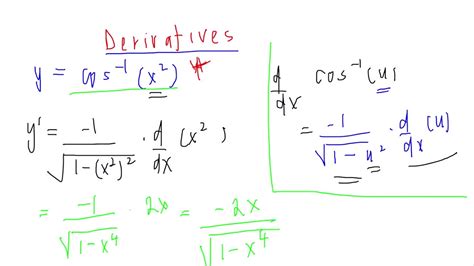 Derivatives
y = cos⁻¹(x²)
y' = -1/√(1-(x²)²) · d/dx (x²)
= -1/√(1-x⁴) · 2x = -2x/√(1-x⁴)
d/dx cos⁻¹(u)
= -1/√(1-u²) · d/dx (u)